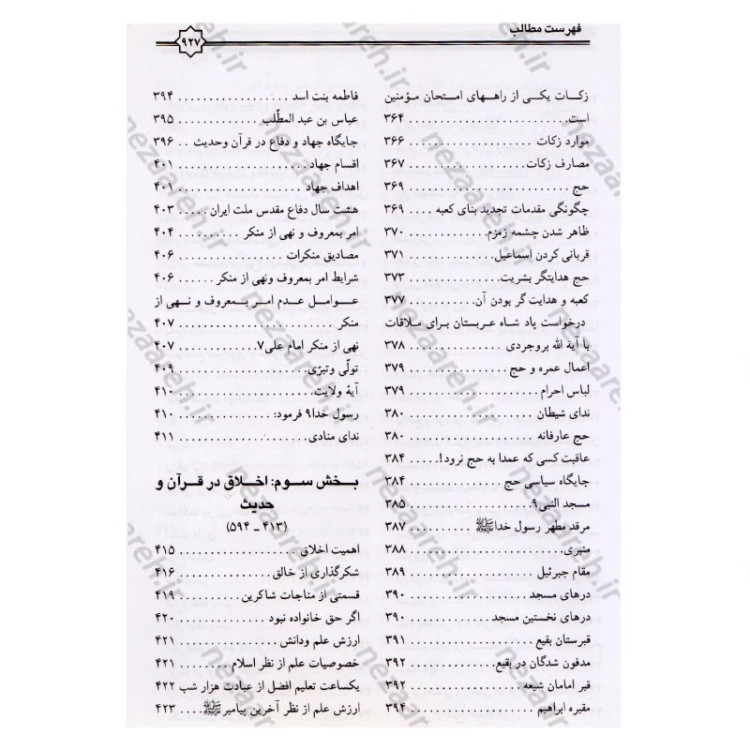 فهرست مطالب
۹۲۷
زکات یکی از راههای امتحان مؤمنین
است. . . . . . . . . . . . . . . . . ۳۶۴
موارد زکات . . . . . . . . . . . . . . . . . ۳۶۶
مصارف زکات . . . . . . . . . . . . . . . . . ۳۶۷
حج . . . . . . . . . . . . . . . . . ۳۶۹
چگونگی مقدمات تجدید بنای کعبه . . . . ۳۶۹
ظاهر شدن چشمه زمزم . . . . . . . . ۳۷۰
قربانی کردن اسماعیل. . . . . . . . . . ۳۷۱
حج هدایتگر بشریت. . . . . . . . . . . ۳۷۳
کعبه و هدایت گر بودن آن . . . . . . . ۳۷۷
درخواست پاد شاه عربستان برای ملاقات
با آیة الله بروجردی . . . . . . . . . . ۳۷۸
اعمال عمره و حج . . . . . . . . . . . ۳۷۹
لباس احرام . . . . . . . . . . . . . . . ۳۷۹
ندای شیطان . . . . . . . . . . . . . . . ۳۸۰
حج عارفانه . . . . . . . . . . . . . . . ۳۸۰
عاقبت کسی که عمدا به حج نرود!. . . . . ۳۸۴
جایگاه سیاسی حج . . . . . . . . . . . ۳۸۴
مسجد النبی۹. . . . . . . . . . . . . . . ۳۸۵
مرقد مطهر رسول خداﷺ . . . . . . . ۳۸۷
منبری. . . . . . . . . . . . . . . . . ۳۸۸
مقام جبرئیل . . . . . . . . . . . . . . . ۳۸۹
درهای مسجد . . . . . . . . . . . . . . . ۳۹۰
درهای نخستین مسجد . . . . . . . . . . ۳۹۰
قبرستان بقیع . . . . . . . . . . . . . . . ۳۹۱
مدفون شدگان در بقیع. . . . . . . . . . ۳۹۲
قبر امامان شیعه . . . . . . . . . . . . . ۳۹۲
مقبره ابراهیم . . . . . . . . . . . . . . . ۳۹۴
فاطمه بنت اسد . . . . . . . . . . . . . . . ۳۹۴
عباس بن عبد المطّلب . . . . . . . . . . ۳۹۵
جایگاه جهاد و دفاع در قرآن وحدیث . . ۳۹۶
اقسام جهاد. . . . . . . . . . . . . . . ۴۰۱
اهداف جهاد. . . . . . . . . . . . . . . ۴۰۱
هشت سال دفاع مقدس ملت ایران . . . . ۴۰۳
امر بمعروف و نهی از منکر . . . . . . . . ۴۰۴
مصادیق منکرات . . . . . . . . . . . . . ۴۰۶
شرایط امر بمعروف ونهی از منکر . . . . . ۴۰۶
عوامل عدم امر بمعروف و نهی از
منکر . . . . . . . . . . . . . . . . . ۴۰۷
نهی از منکر امام علی۷. . . . . . . . . . ۴۰۷
تولّی وتبرّی. . . . . . . . . . . . . . . ۴۰۹
آیهٔ ولایت. . . . . . . . . . . . . . . . . ۴۱۰
رسول خدا۹ فرمود: . . . . . . . . . . . ۴۱۰
ندای منادی. . . . . . . . . . . . . . . ۴۱۱
بخش سوم: اخلاق در قرآن و
حدیث
(۴۱۳ ـ ۵۹۴)
اهمیت اخلاق . . . . . . . . . . . . . . . ۴۱۵
شکرگذاری از خالق . . . . . . . . . . . ۴۱۶
قسمتی از مناجات شاکرین . . . . . . . . ۴۱۹
اگر حق خانواده نبود . . . . . . . . . . ۴۲۰
ارزش علم ودانش. . . . . . . . . . . . . ۴۲۱
خصوصیات علم از نظر اسلام. . . . . . . . ۴۲۱
یکساعت تعلیم افضل از عبادت هزار شب ۴۲۲
ارزش علم از نظر آخرین پیامبرﷺ. . . . ۴۲۳
nezaareh.ir